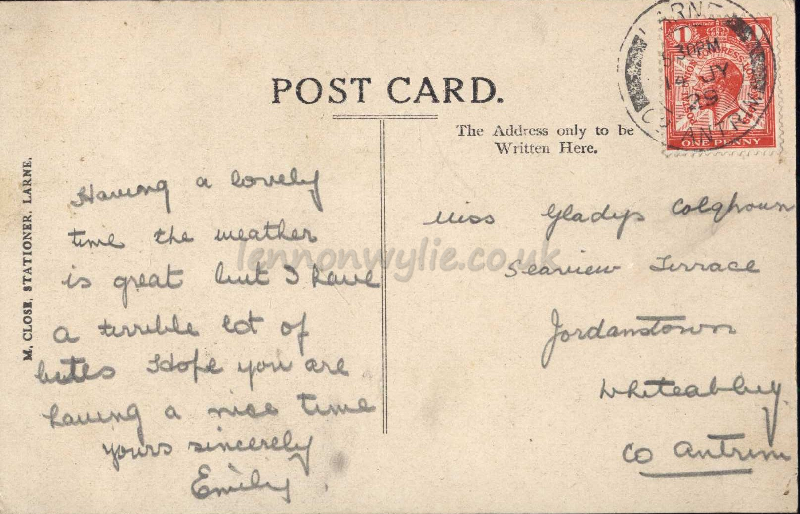 POST CARD.
The Address only to be
Written Here.
M. CLOSE, STATIONER, LARNE.
Having a lovely
time the weather
is great but I have
a terrible lot of
bites Hope you are
having a nice time
yours sincerely
Emily
Miss Gladys Colqhoun
Seaview Terrace
Jordanstown
Whiteabbey
Co Antrim
LARNE
5.30PM
14 JY
29
CO. ANTRIM
1
POSTAL UNION CONGRESS LONDON 1929
ONE PENNY
lennonwylie.co.uk